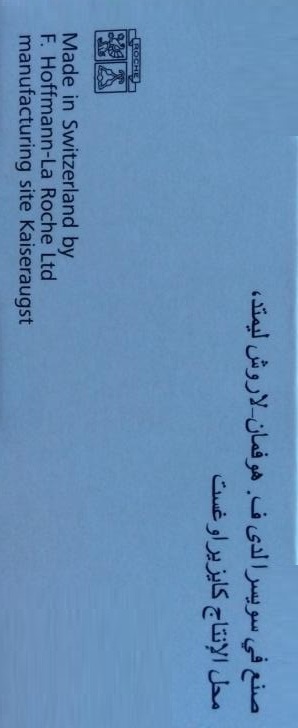 ROCHE
Made in Switzerland by
F. Hoffmann-La Roche Ltd
manufacturing site Kaiseraugst
صنع في سويسرا لدى ف. هوفمان-لاروش ليمتد،
محل الإنتاج كايزيراوغست